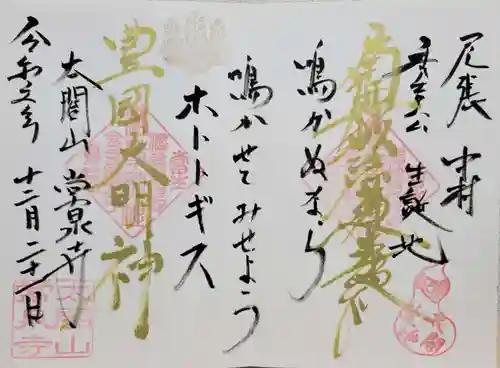 尾張 中村
豊太公 生誕地
南無妙法蓮華経
鳴かぬなら
鳴かせてみせよう
ホトトギス
豊國大明神
太閤山 常泉寺
令和 年 十二月 二十一日